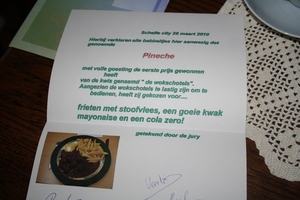 Schelle city 26 maart 2010
Hierbij verklaren alle bobbietjes hier aanwezig dat
genoemde
Pineche
met volle goesting de eerste prijs gewonnen
heeft
van de kwis genaamd " de wokschotels".
Aangezien de wokschotels te lastig zijn om te
bedienen, heeft zij gekozen voor....
frieten met stoofvlees, een goeie kwak
mayonaise en een cola zero!
getekend door de jury